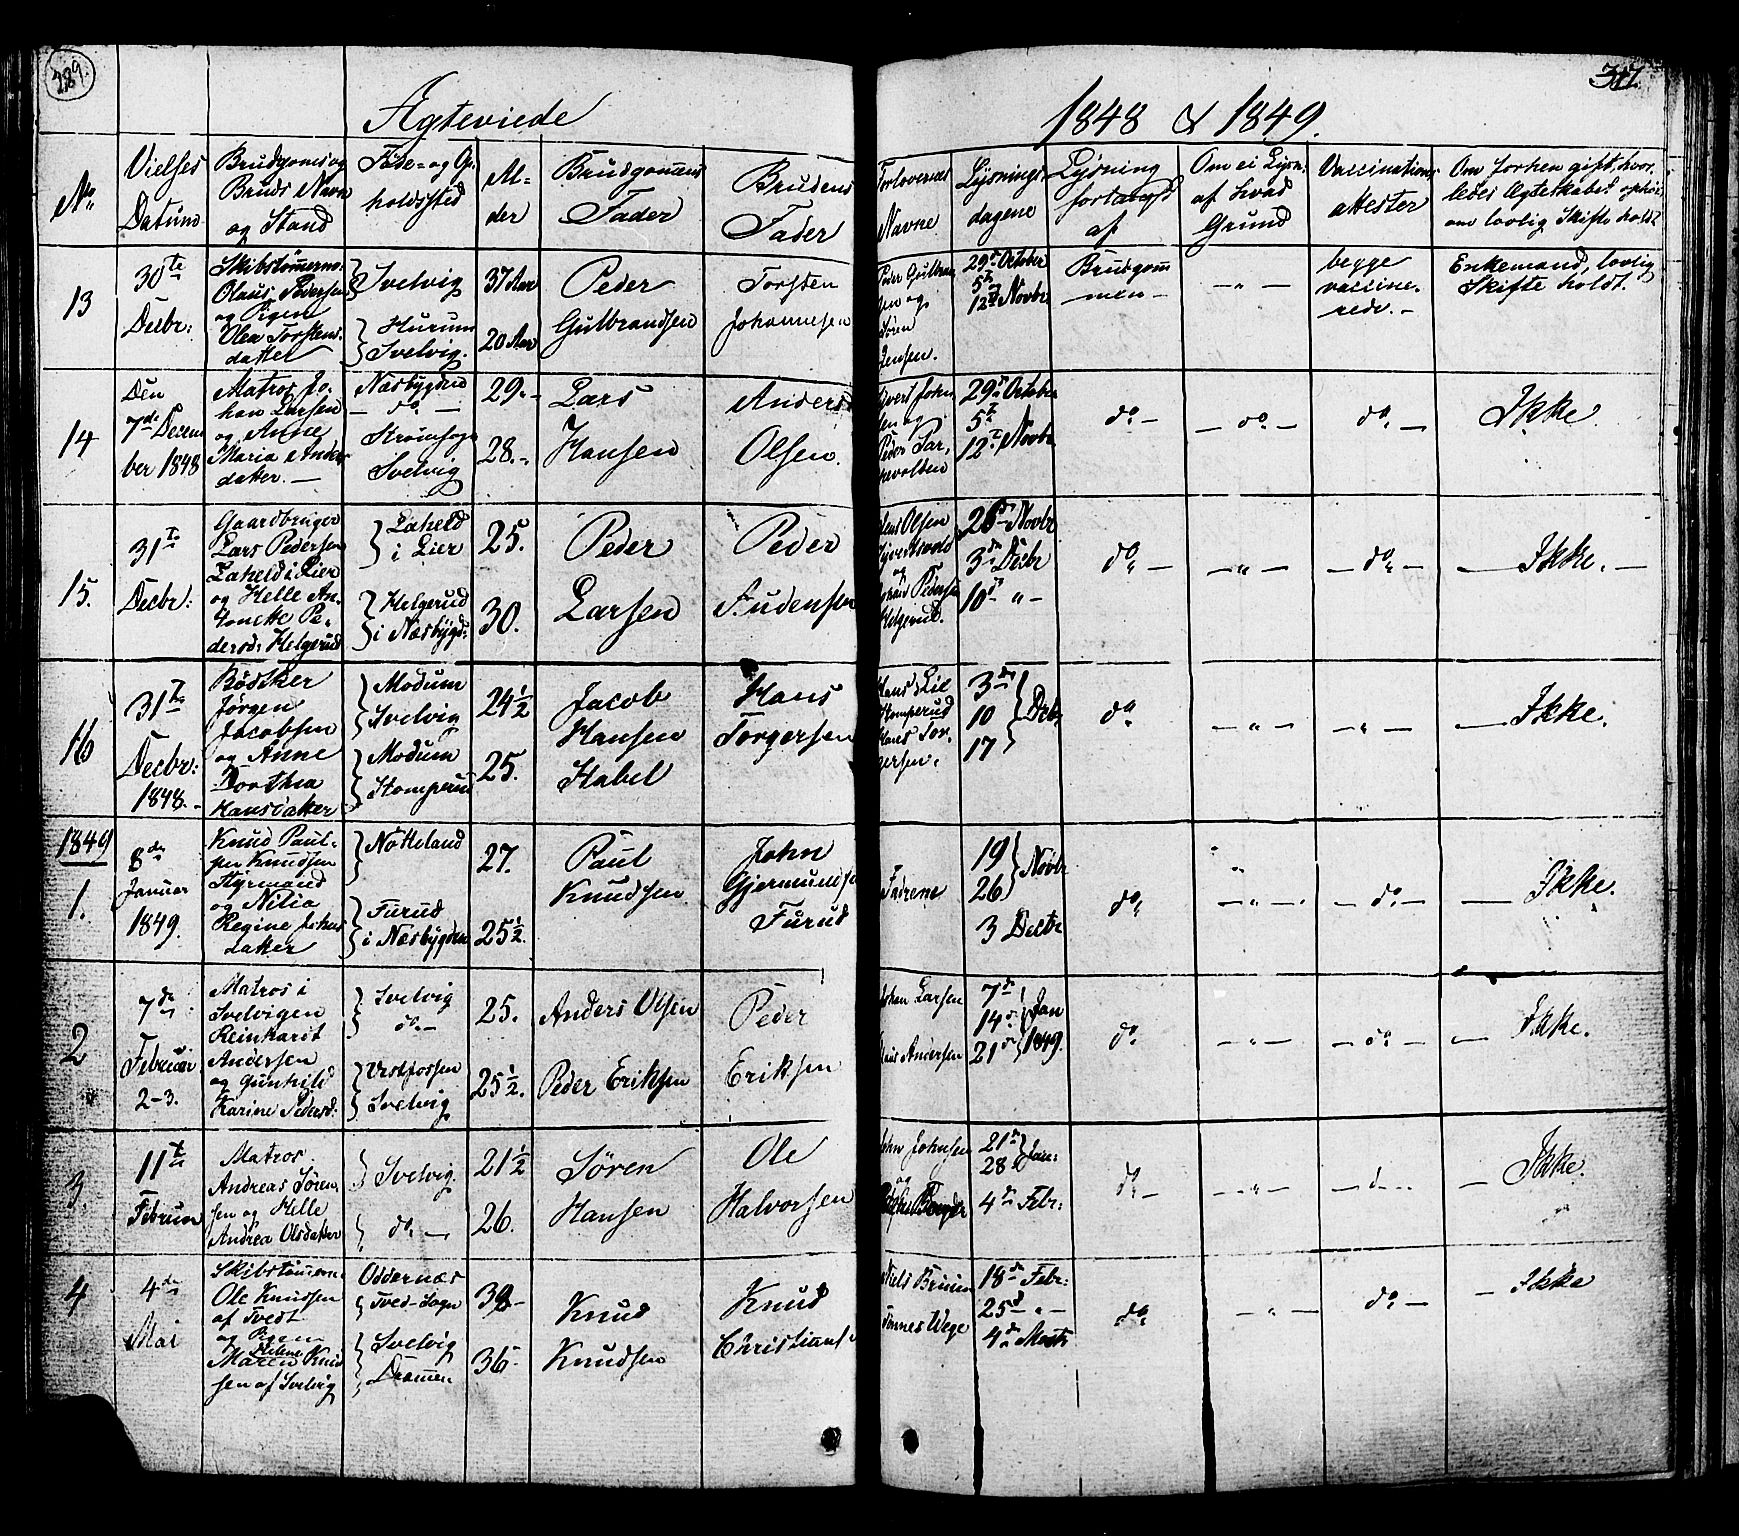 289.
317
Ægteviede
1848 & 1849.
No
Vielses
Datum
Brudgoms og
Bruds Navn
og Stand
Føde- og Op-
holdssted
Al-
der
Brudgommens
Fader
Brudens
Fader
Forlovernes
Navne
Lysnings-
dagene
Lysning
forlangt
af
Om ei Lysn:
af hvad
Grund
Vaccinations
attester
Om forhen gift, hvor-
ledes Ægteskabet ophör
om lovlig Skifte holdt
13
30te
Decbr:
Skibstömerm.
Olaus Pedersen
og Pigen
Olea Torstens-
datter
Svelvig
Hurum
Svelvig.
37 Aar
20 Aar
Peder
Gulbrandsen
Torsten
Johannesen
Peder Gulbran
sen og
Sören
Jensen.
29de October
5te
12te Novbr
Brudgom
men -
- " -
begge
vaccine-
rede. -
Enkemand, lovlig
Skifte holdt.
14
Den
7de Decem
ber 1848
Matros Jo-
han Larsen
og Anne
Maria Anders
datter. -
Næsbygden
- do. -
Strömsogn
Svelvig
29. -
28. -
Lars
Hansen
Anders
Olsen.
John
sen og
Peder
29de October
5te
12te Novbr
do -
- do. -
do -
Ikke.
15.
31te
Decbr:
Gaardbruger
Lars Pedersen
Laheld i Lier
og Helle An-
tonette Pe-
dersd: Helgerud
Laheld
i Lier
Helgerud
i Næsbygd:
25.
30.
Peder
Larsen
Peder
Audensen
Jens Olsen
og
Pedersen
Helgerud.
26 Novbr
3de Decbr
10de " -
do -
- " -
- do -
- Ikke. -
16
31te
Decbr:
1848. -
Bödker
Jörgen
Jacobsen
og Anne
Dorthea
Hansdatter
Modum
Svelvig
Modum
Stomperud
24½
25.
Jacob
Hansen
Habel
Hans
Torgersen
Hans Lie
Stomperud
Hans Tor-
gersen.
3de
10
17
Decbr
do
- " -
- " -
- Ikke.
1849
1.
8de
Januar
1849.
Knud Paul-
sen Knudsen
Styrmand
og Nilia
Regine Johns
datter
Nötteland
Furud
i Næsbygden
27.
25½.
Paul
Knudsen
John
Gjermundsen
Furud
Fædrene
19
26
Novbr
3 Decbr
do
"
- " -
- do -
- Ikke.
2
7de
Februar
2-3.
Matros i
Svelvigen
Reinhardt
Andersen
og Gunhild
Karine Pedersd:
Svelvig
do -
Vestfossen
Svelvig
25.
25½.
Anders Olsen
Peder Eriksen
Peder
Eriksen
Johan Larsen
Claus Andersen
7de
14de
21de
Jan
1849.
do
- " -
- do -
- Ikke.
3.
11te
Februar
Matros
Andreas Sören-
sen og Helle
Andrea Olsdatter
Svelvig.
do -
21½
26.
Sören
Hansen
Ole
Halvorsen
John Johnsen
og
21de
28
Jan:
4de Febr:
do -
- " -
- d -
- Ikke
4
4de
Mai
Skibstömerm.
Ole Knudsen
af Tvedt
og Pigen
Helene
Maren Knud
sen af Svelvig
Oddernæs
Tved-Sogn
Svelvig
Drammen
38 -
36 -
Knud
Knudsen
Knud
Christians
Niels Bruun
Tönnes Wege
18de Febr:
25d " -
4de Marts
do
- " -
do. -
- Ikke